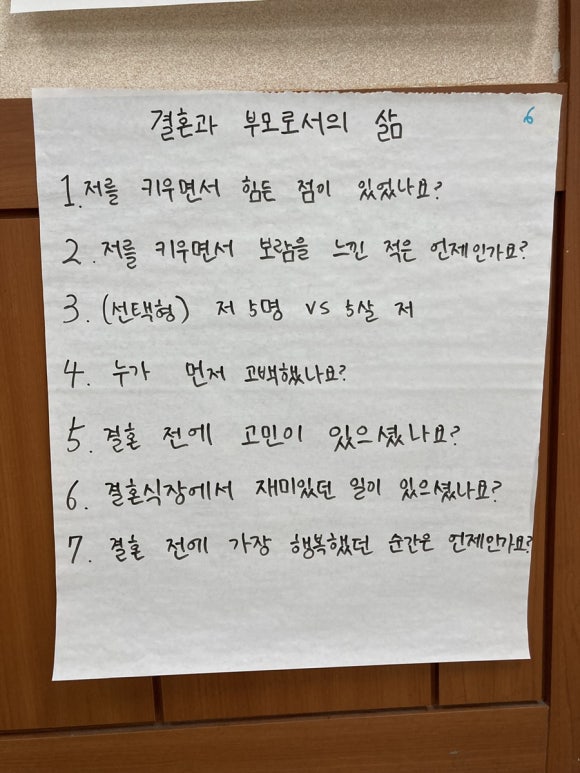 결혼과 부모로서의 삶
6
1. 저를 키우면서 힘든 점이 있었나요?
2. 저를 키우면서 보람을 느낀 적은 언제인가요?
3. (선택형) 저 5명 vs 5살 저
4. 누가 먼저 고백했나요?
5. 결혼 전에 고민이 있으셨나요?
6. 결혼식장에서 재미있던 일이 있으셨나요?
7. 결혼 전에 가장 행복했던 순간은 언제인가요?